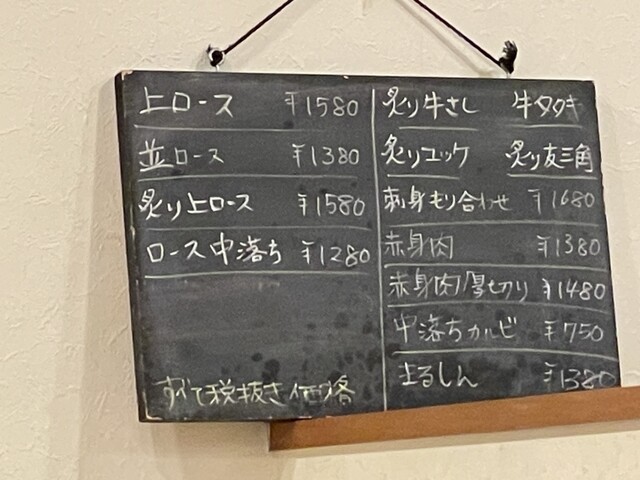 上ロース ¥1580
並ロース ¥1380
炙り上ロース ¥1580
ロース中落ち ¥1280
すべて税抜き価格
炙り牛さし 牛タタキ
炙りユッケ 炙り友三角
刺身もり合わせ ¥1680
赤身肉 ¥1380
赤身肉厚切り ¥1480
中落ちカルビ ¥750
まるしん ¥1380